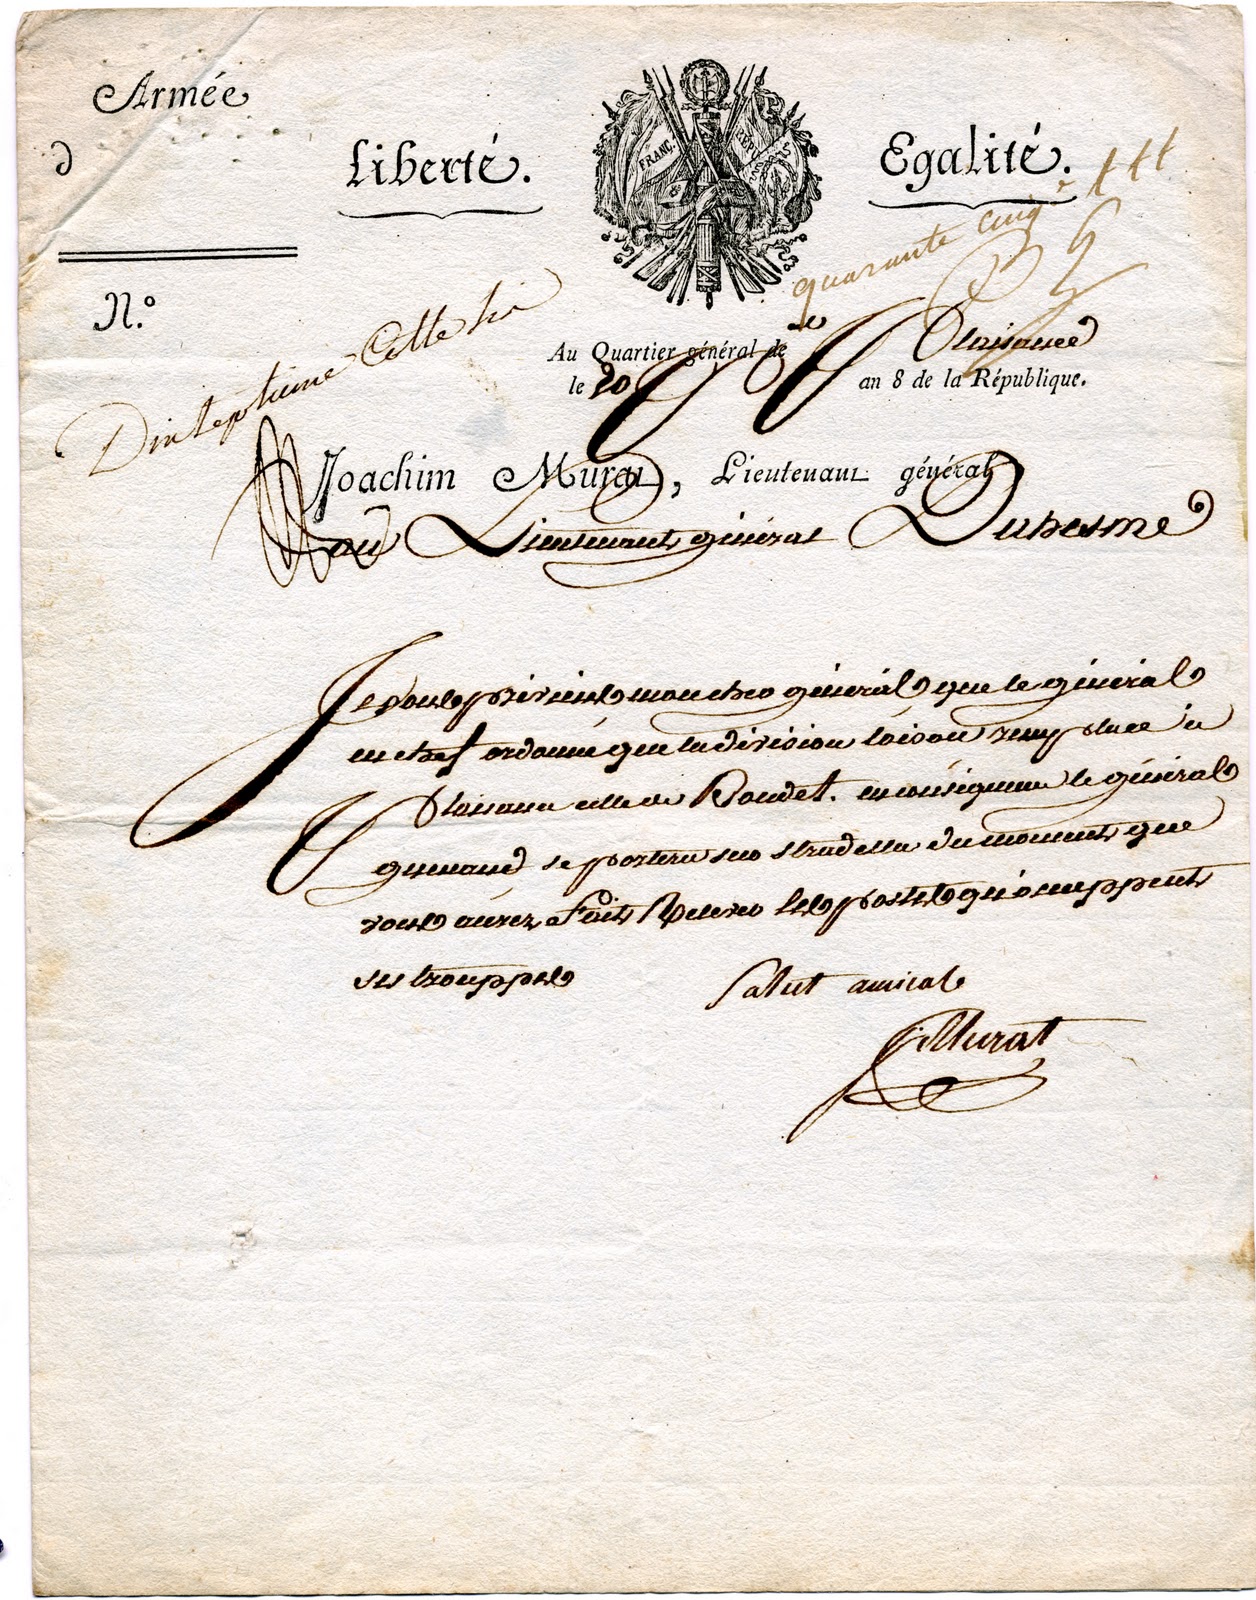 Armée
d
Liberté.
Egalité.
FRANÇ.
REP.
N.º
quarante cinq
Au Quartier général de Plaisance
le 20 an 8 de la République.
Joachim Murat, Lieutenant général
au Lieutenant général Duhesme
Je vous préviens mon cher général que le général
en chef ordonne que la division loison remplace à
Plaisance celle de Boudet. en conséquence le général
guenand se portera sur stradella du moment que
vous aurez fait Relever les postes qu'occuppent
ses trouppes
Salut amical
JMurat